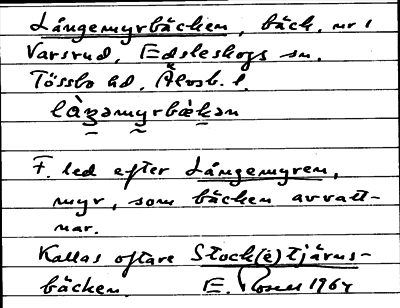 Långemyrbäcken, bäck, nr 1
Varsrud, Edsleskogs sn.
Tössbo hd, Älvsb. l.
là̀ŋəmyrbækən
F. led efter Långemyren,
myr, som bäcken avvatt-
nar.
Kallas oftare Stock(e)tjärns-
bäcken. E. 1964